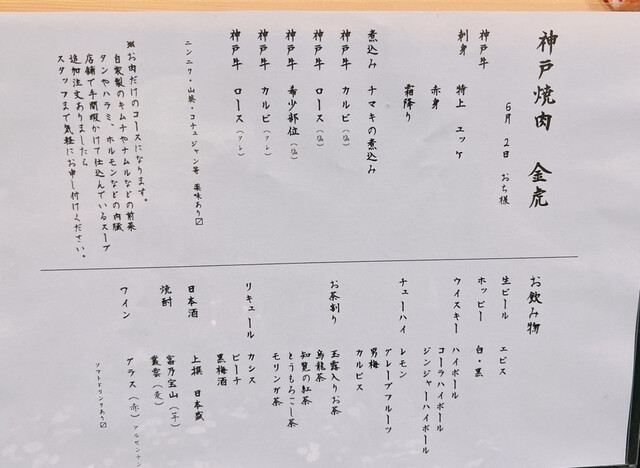 神戸焼肉 金虎
6月2日 おち様
神戸牛
刺身 特上 ユッケ
赤身
霜降り
煮込み ナマキの煮込み
神戸牛 カルビ（塩）
神戸牛 ロース（塩）
神戸牛 希少部位（塩）
神戸牛 カルビ（タレ）
神戸牛 ロース（タレ）
ニンニク・山葵・コチュジャン等 薬味あり〼
※お肉だけのコースになります。
自家製のキムチやナムルなどの前菜
タンやハラミ、ホルモンなどの内臓
店舗で手間暇かけて仕込んでいるスープ
追加注文ありましたら
スタッフまで気軽にお申し付けください。
お飲み物
生ビール エビス
ホッピー 白・黒
ウイスキー ハイボール
コーラハイボール
ジンジャーハイボール
チューハイ レモン
グレープフルーツ
男梅
カルピス
お茶割り 玉露入りお茶
烏龍茶
知覧の紅茶
とうもろこし茶
モリンガ茶
リキュール カシス
ピーチ
黒梅酒
日本酒 上撰 日本盛
焼酎 富乃宝山（芋）
（麦）
ワイン グラス（赤）アルゼンチン
ソフトドリンクあり〼